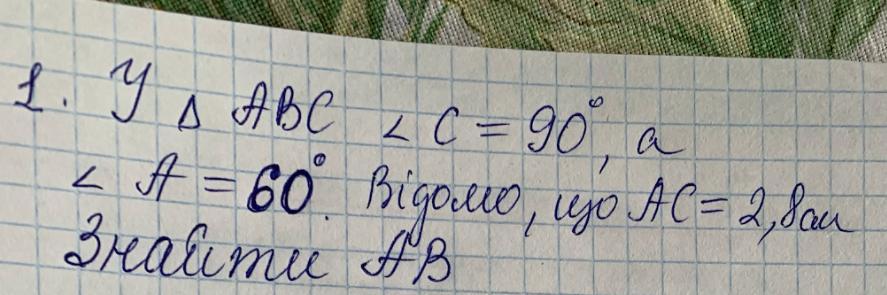 1. У △ ABC ∠ C = 90°, а
∠ A = 60°. Відомо, що AC = 2,8см
Знайти AB